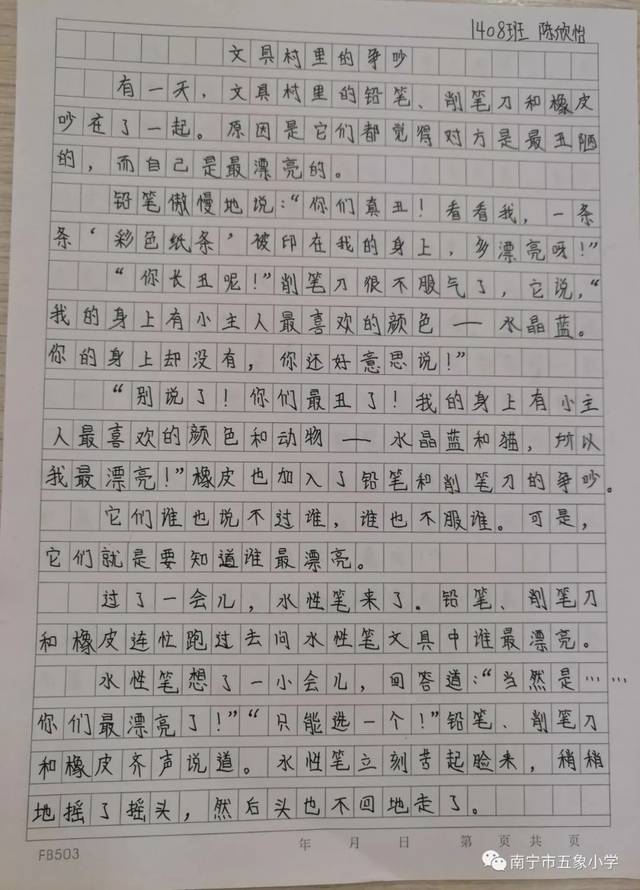 1408班 陈欣怡
文具村里的争吵
有一天，文具村里的铅笔、削笔刀和橡皮
吵在了一起。原因是它们都觉得对方是最丑陋
的，而自己是最漂亮的。
铅笔傲慢地说：“你们真丑！看看我，一条
条‘彩色纸条’被印在我的身上，多漂亮呀！”
“你长丑呢！”削笔刀很不服气了，它说，“
我的身上有小主人最喜欢的颜色——水晶蓝。
你的身上却没有，你还好意思说！”
“别说了！你们最丑了！我的身上有小主
人最喜欢的颜色和动物——水晶蓝和猫，所以
我最漂亮！”橡皮也加入了铅笔和削笔刀的争吵。
它们谁也说不过谁，谁也不服谁。可是，
它们就是要知道谁最漂亮。
过了一会儿，水性笔来了。铅笔、削笔刀
和橡皮连忙跑过去问水性笔文具中谁最漂亮。
水性笔想了一小会儿，回答道：“当然是……
你们最漂亮了！”“只能选一个！”铅笔、削笔刀
和橡皮齐声说道。水性笔立刻苦起脸来，稍稍
地摇了摇头，然后头也不回地走了。
年 月 日 第 页 共 页
FB503
南宁市五象小学